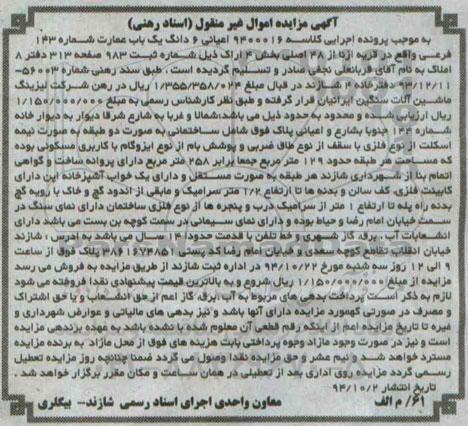 آگهی مزایده اموال غیر منقول (اسناد رهنی)
به موجب پرونده اجرایی کلاسه ۹۴۰۰۰۱۶ اعیانی ۶ دانگ یک باب عمارت شماره ۱۴۳
فرعی واقع در قریه ازنا از ۳۸ اصلی بخش ۴ اراک ذیل شماره ثبت ۹۸۳ صفحه ۳۱۳ دفتر ۸
املاک به نام آقای قربانعلی نجفی صادر و تسلیم گردیده است . طبق سند رهنی شماره ۵۶۰۰۳-
۹۳/۱۲/۱۱ دفترخانه ۴ شازند در قبال مبلغ ۱/۳۵۵/۳۵۸/۰۲۴ ریال در رهن شرکت لیزینگ
ماشین آلات سنگین ایرانیان قرار گرفته و طبق نظر کارشناس رسمی به مبلغ ۱/۱۵۰/۰۰۰/۰۰۰
ریال ارزیابی شده و محدود به حدود ذیل می باشد:شمالا و غربا به شارع شرقا دیوار به دیوار خانه
شماره ۱۴۴ جنوبا بشارع و اعیانی پلاک فوق شامل ساختمانی به صورت دو طبقه به صورت نیمه
اسکلت از نوع فلزی با سقف از نوع طاق ضربی و پوشش بام از نوع ایزوگام با کاربری مسکونی بوده
که مساحت هر طبقه حدود ۱۲۹ متر مربع جمعا برابر ۲۵۸ متر مربع دارای پروانه ساخت و گواهی
اتمام بنا از شهرداری شازند هر طبقه به صورت مستقل و دارای یک خواب آشپزخانه اپن دارای
کابینت فلزی کف سالن و بدنه ها تا ارتفاع ۱/۲ متر سرامیک و مابقی از اندود گچ و خاک با رویه گچ
بدنه راه پله تا ارتفاع ۱ متر از سرامیک درب و پنجره ها از نوع فلزی ساختمان دارای نمای سنگ در
سمت خیابان امام رضا و حیاط بوده و دارای نمای سیمانی در سمت کوچه بن بست می باشد دارای
انشعابات آب ، برق، گاز شهری و خط تلفن با قدمت حدودا ۳ سال می باشد به ادرس : شازند
خیابان انقلاب تقاطع کوچه سعدی و خیابان امام رضا کد پستی ۳۸۶۱۶۷۳۸۵۱ پلاک فوق از ساعت
۹ الی ۱۲ روز سه شنبه مورخ ۹۴/۱۰/۲۲ در اداره ثبت شازند از طریق مزایده به فروش می رسد
مزایده از مبلغ ۱/۱۵۰/۰۰۰/۰۰۰ ریال شروع و به بالاترین قیمت پیشنهادی نقدا فروخته می شود
لازم به ذکر است پرداخت بدهی های مربوط به آب،برق، گاز اعم از حق انشعاب و یا حق اشتراک
و مصرف در صورتی که مورد مزایده دارای آنها باشد و نیز بدهی های مالیاتی و عوارض شهرداری و
غیره تا تاریخ مزایده اعم از اینکه رقم قطعی آن معلوم شده یا نشده باشد به عهده برنده مزایده
است و نیز در صورت وجود مازاد وجوه پرداختی بابت هزینه های فوق از محل مازاد به برنده مزایده
مسترد خواهد شد و نیم عشر و حق مزایده نقدا وصول می گردد ضمنا چنانچه روز مزایده تعطیل
رسمی گردد مزایده روز اداری بعد از تعطیلی در همان ساعت و مکان مقرر برگزار خواهد شد .
تاریخ انتشار ۹۴/۱۰/۲
۶۱/ م الف
معاون واحدی اجرای اسناد رسمی شازند- بیگلری